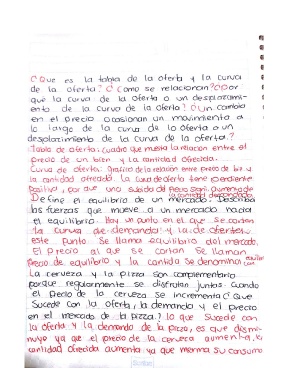 ¿Que es la tabla de la oferta y la curva
de la oferta? ¿Como se relacionan? ¿Por
qué la curva de la oferta o un desplazami-
ento de la curva de oferta? ¿Un cambio
en el precio ocasionan un movimiento a
lo largo de la curva de la oferta o un
desplazamiento de la curva de la oferta.?
Tabla de oferta: cuadro que muesta la relación entre el
precio de un bien y la cantidad ofrecida.
Curva de oferta: Grafico de la relación entre precio de
la cantidad ofrecida. La curva de oferta tiene pendiente
Positiva, por que una subida del precio aumento de
la cantidad demandada
Define el equilibrio de un mercado. Describa
las fuerzas que mueve a un mercado hacia
el equilibrio. Hay un punto en el que se cortan
la curva de demanda y la de oferta,
este punto se llama equilibrio del mercado.
El precio al que se cortan se llaman
Precio de equilibrio y la cantida se denomina
La cerveza y la pizza son complementario
porque regularmente se disfrutan juntas. Cuando
el precio de la cerveza se incrementa ¿Que
sucede con la oferta, la demanda y el precio
en el mercado de la pizza.? lo que sucede con
la oferta y la demanda de la pizza, es que dismi-
nuye ya que el precio de la cerveza aumenta, la
cantidad ofrecida aumenta ya que merma su consumo